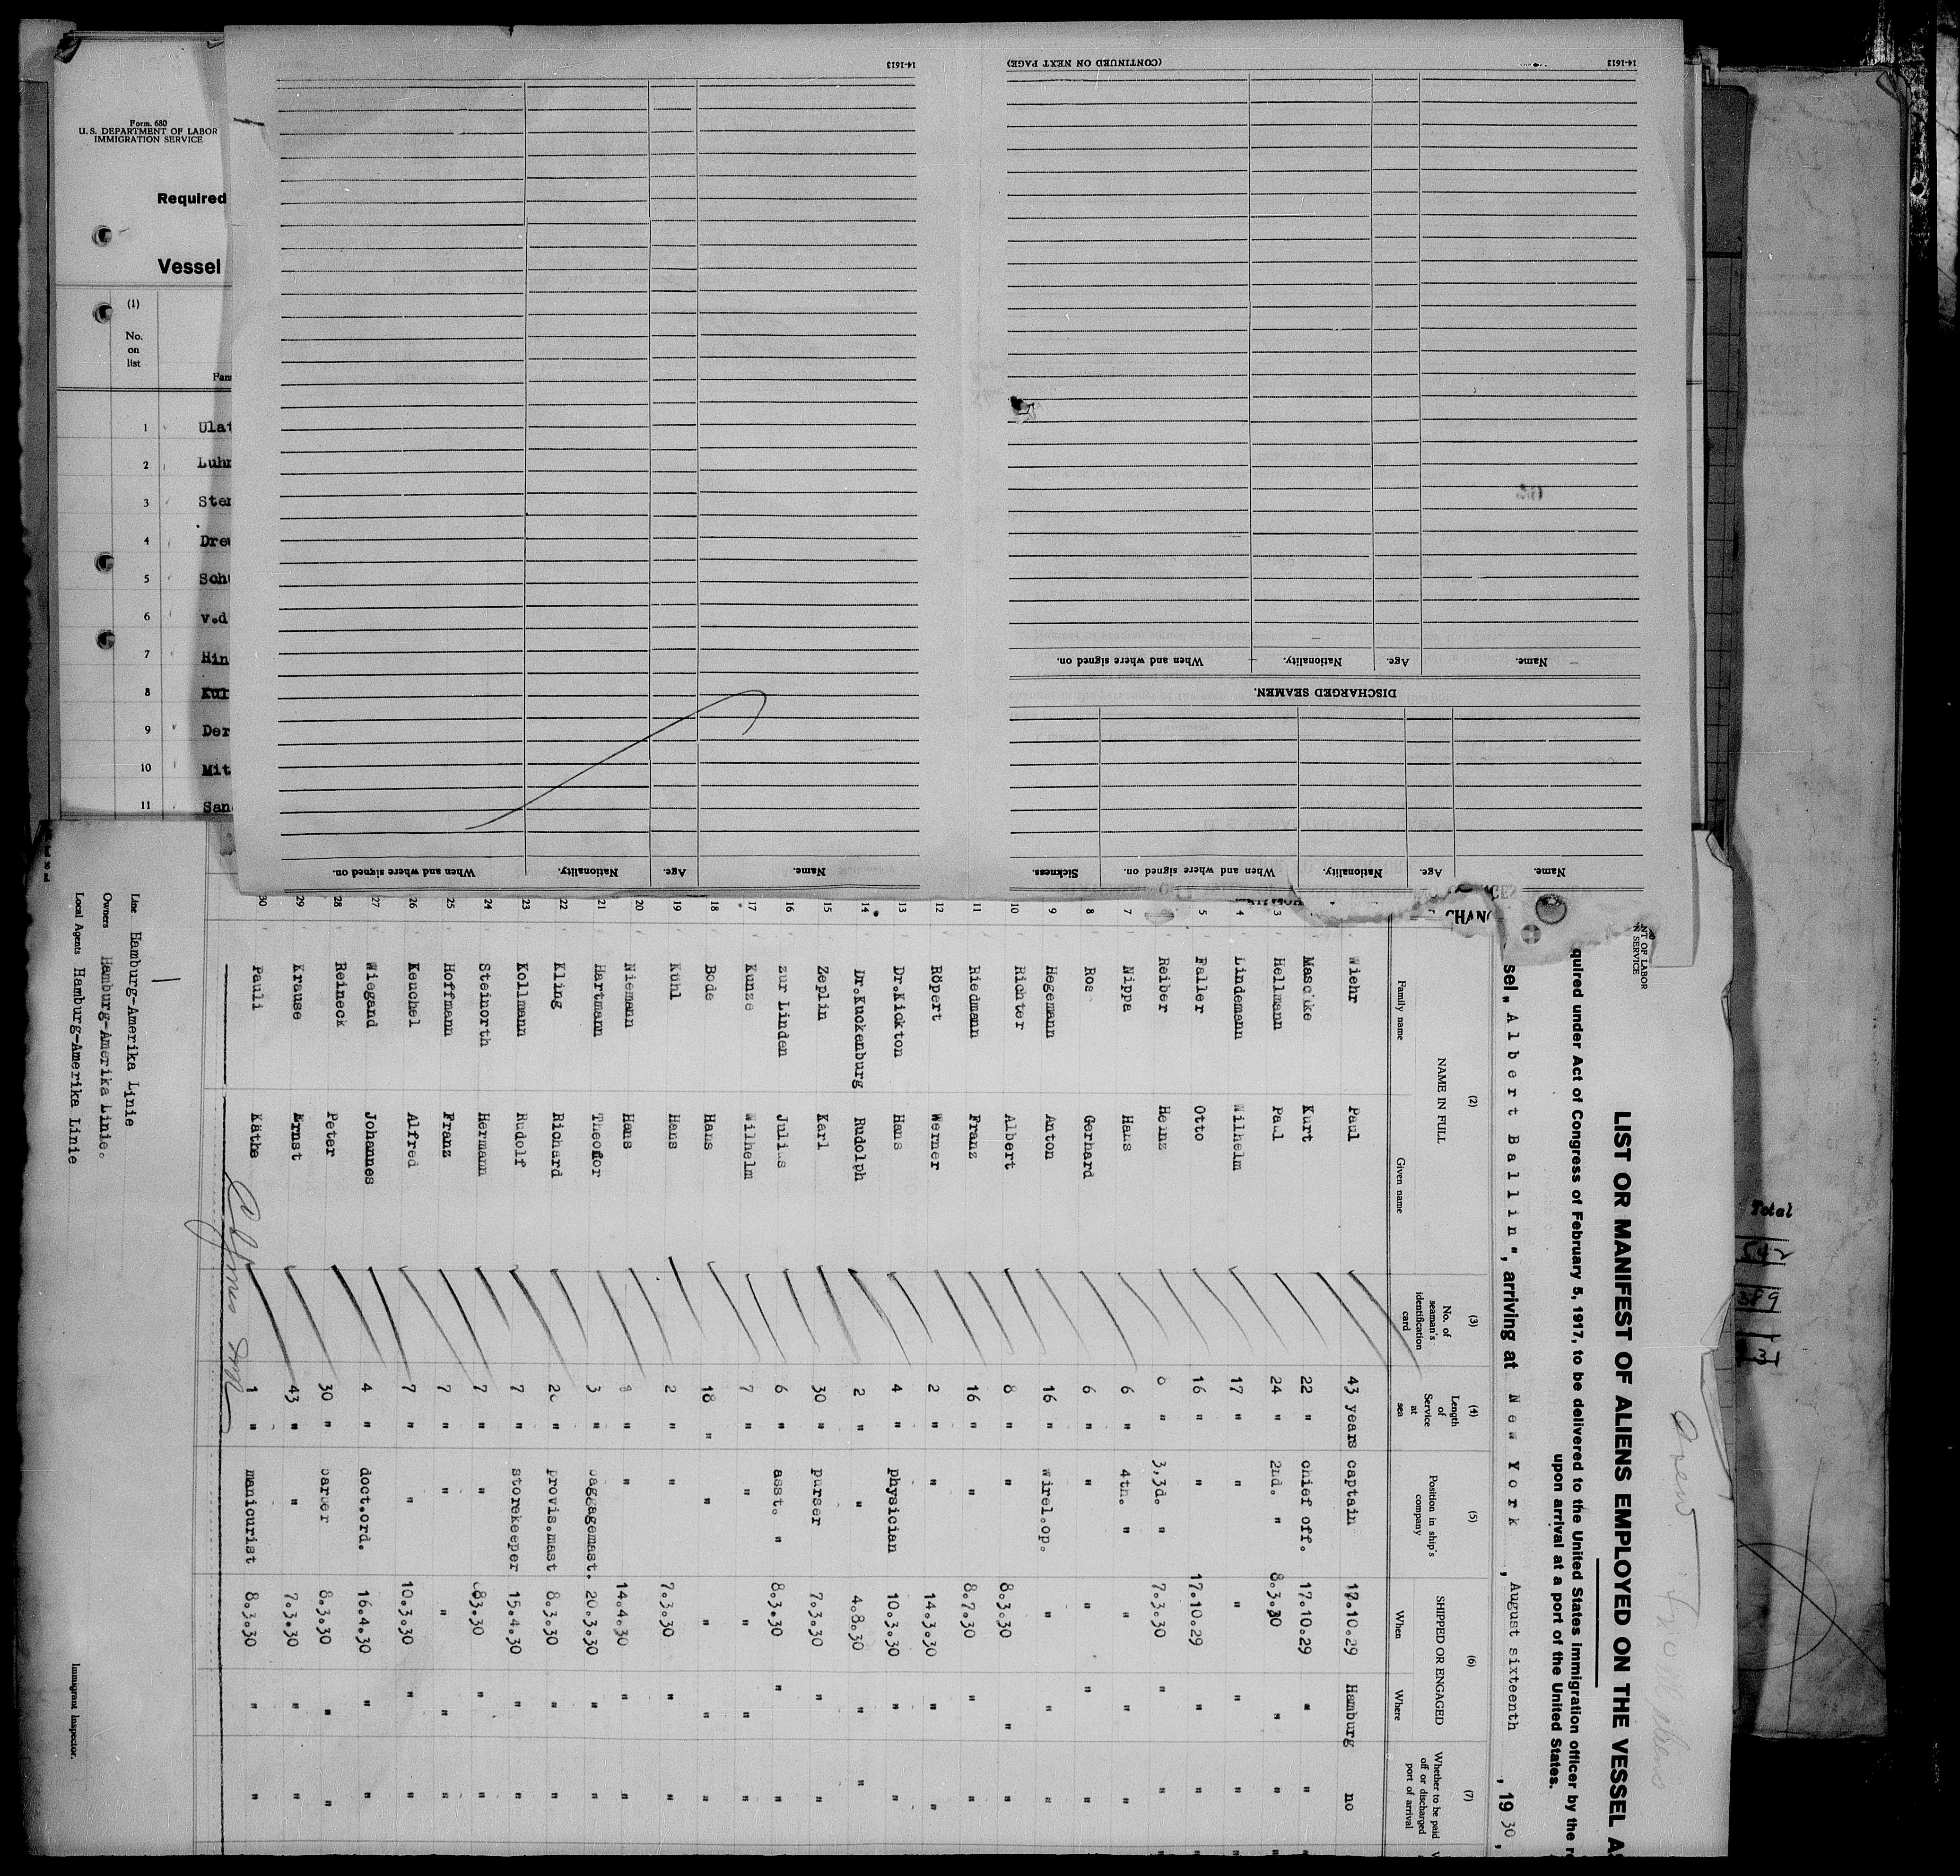 Form. 680
U. S. DEPARTMENT OF LABOR
IMMIGRATION SERVICE
Required
Vessel
(1)
No.
on
list
Fam
1 Ulat
2 Luhr
3 Ster
4 Drew
5 Schu
6 v.d
7 Hin
8 Kur
9 Der
10 Mit
11 San
14-1613
(CONTINUED ON NEXT PAGE)
14-1613
Name. Age. Nationality. When and where signed on.
DISCHARGED SEAMEN.
Name. Age. Nationality. When and where signed on. Sickness.
Name. Age. Nationality. When and where signed on.
Total
542
389
131
NT OF LABOR
N SERVICE
LIST OR MANIFEST OF ALIENS EMPLOYED ON THE VESSEL AS
quired under Act of Congress of February 5, 1917, to be delivered to the United States immigration officer by the re
upon arrival at a port of the United States.
sel „Albert Ballin", arriving at New York, August sixteenth, 1930,
(2) (3) (4) (5) (6) (7)
NAME IN FULL
Family name Given name
No. of seaman's identification card
Length of Service at sea
Position in ship's company
SHIPPED OR ENGAGED
When Where
Whether to be paid off or discharged port of arrival
Wiehr Paul 43 years captain 17.10.29 Hamburg no
Kurt 22 " chief off. 17.10.29 " "
3 Hellmann Paul 24 " 2nd. " 8.3.30 " "
4 Lindemann Wilhelm 17 " " " " "
5 Faller Otto 16 " " 17.10.29 " "
Reiber Heinz " 3,3d. " 7.3.30 " "
7 Nippa Hans 6 " 4th. " " " "
8 Ros Gerhard 6 " " " " "
9 Hegemann Anton 16 " wirel.op. " " "
10 Richter Albert 8 " " 8.3.30 " "
11 Riedmann Franz 16 " " 8.7.30 " "
12 Röpert Werner 2 " " 14.3.30 " "
13 Dr.Kickton Hans 4 " physician 10.3.30 " "
14 Dr.Kuckenburg Rudolph 2 " " 4.8.30 " "
15 Zeplin Karl 30 " purser 7.3.30 " "
16 zur Linden Julius 6 " asst. " 8.3.30 " "
17 Kunze Wilhelm 7 " " " " "
18 Bode Hans 18 " " " " "
19 Kühl Hans 2 " " 7.3.30 " "
20 Niemann Hans 8 " " 14.4.30 " "
21 Hartmann Theodor 3 " baggagemast. 20.3.30 " "
22 Kling Richard 20 " provis.mast 8.3.30 " "
23 Kollmann Rudolf 7 " storekeeper 15.4.30 " "
24 Steinorth Hermann 7 " " 83.30 " "
25 Hoffmann Franz 7 " " " " "
26 Keuchel Alfred 7 " " 10.3.30 " "
27 Wiegand Johannes 4 " doct.ord. 16.4.30 " "
28 Reineck Peter 30 " barber 8.3.30 " "
29 Krause Ernst 43 " " 7.3.30 " "
30 Pauli Käthe 1 " manicurist 8.3.30 " "
Line Hamburg-Amerika Linie
Owners Hamburg-Amerika Linie.
Local Agents Hamburg-Amerika Linie
Immigrant Inspector.